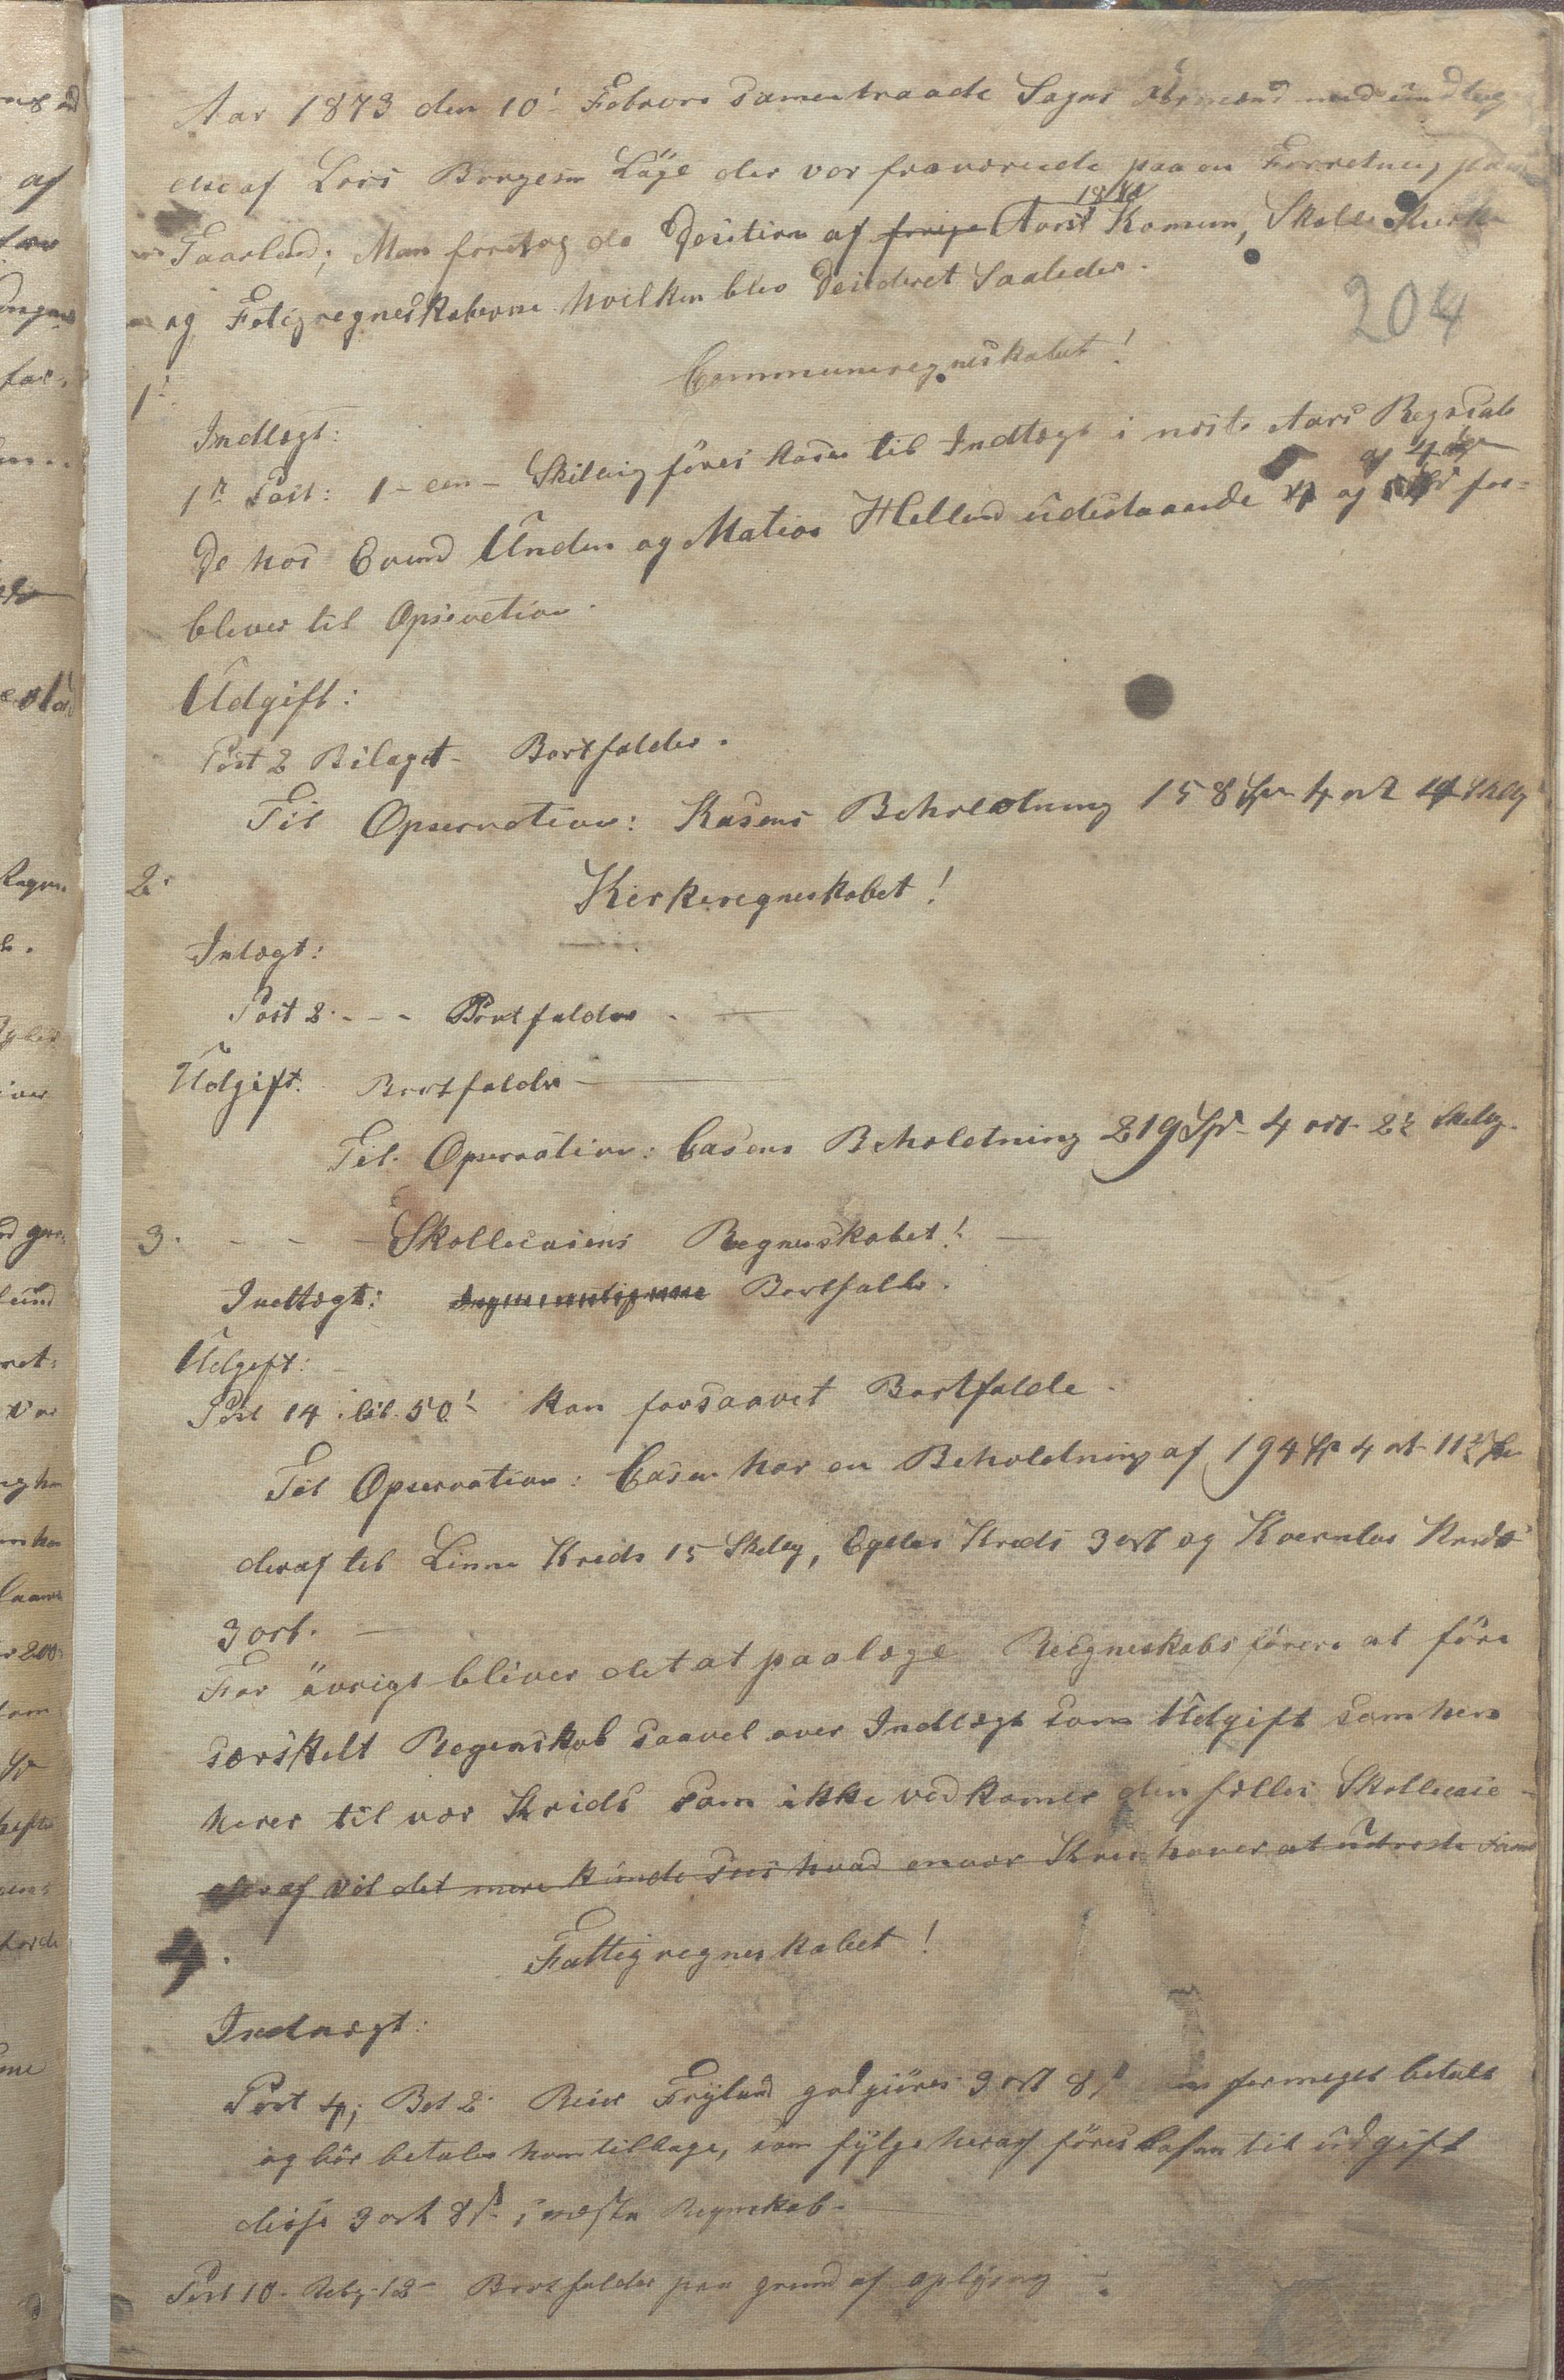 Aar 1873 den 10' Februvr samentraade Sogns Formænd med undtag
else af Lars Borgesen Läge der var fraværende paa en Forretning paa
Taarland; Man foretog da Desition af forrige Aars 1872 Komun, Skolle Kirke
og Fatigregneskaberne hvilken blev Desideret Saaledes.
204
1'. Communeregneskabet!
Indtægt:
1ste Post: 1 - een - Skilling föres kasen til Indtægt i næste Aars Regnskab
De hos Evind Unden og Matias Helland udestaaende 4 og for=
bliver til Opservation.
Udgift:
Post 2 Bilaget - Bortfalder.
Til Opservation: Kasens Beholdning 158 Spd 4 ort 14 Skillg
2. Kirkeregneskabet!
Intægt:
Post 2. - - - Bortfalder.
Udgift. Bortfalder
Til Opservation: Casens Beholdning 219 Spd - 4 ort - 2½ Skillg.
3. - - - Skollecasens Regneskabet!
Indtægt: Bortfalder.
Udgift:
Post 14. bil. 50' kan forsaavet Bortfalde.
Til Opservation: Casen har en Beholdning af 194 Spd 4 ort 11½ Sk
deraf til Linne Kreds 15 Skillg, Egeles Kreds 3 ort og Kvernlas Kreds
3 ort.
For övrigt bliver det at paalæge Regneskabsförere at före
særskelt Regenskab saavel over Indtægt som Udgift som hen
hører til vær Kreds som ikke vedkomer den fælles Skollecase
deraf vil det mere kunde sees hvad enver Kreds haver at udrede
4. Fattigregneskabet!
Indtægt:
Post 4; Bel 2. Reier Frylund godgiöres 3 ort 8 s formeget betalt
og bör betales ham tilbage, som fylge heraf föres Casen til udgift
disse 3 ort 8 s i næste Regnskab.
Post 10. Belg. 12 - Bortfalder paa grund af oplysning